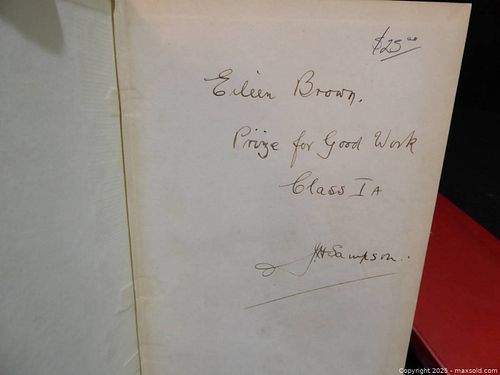 $25.00
Eileen Brown.
Prize for Good Work
Class I A
J.H Sampson.
Copyright 2025 - maxsold.com